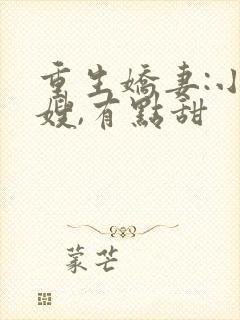 重生嬌妻:小
嫂,有點甜
蒙芒